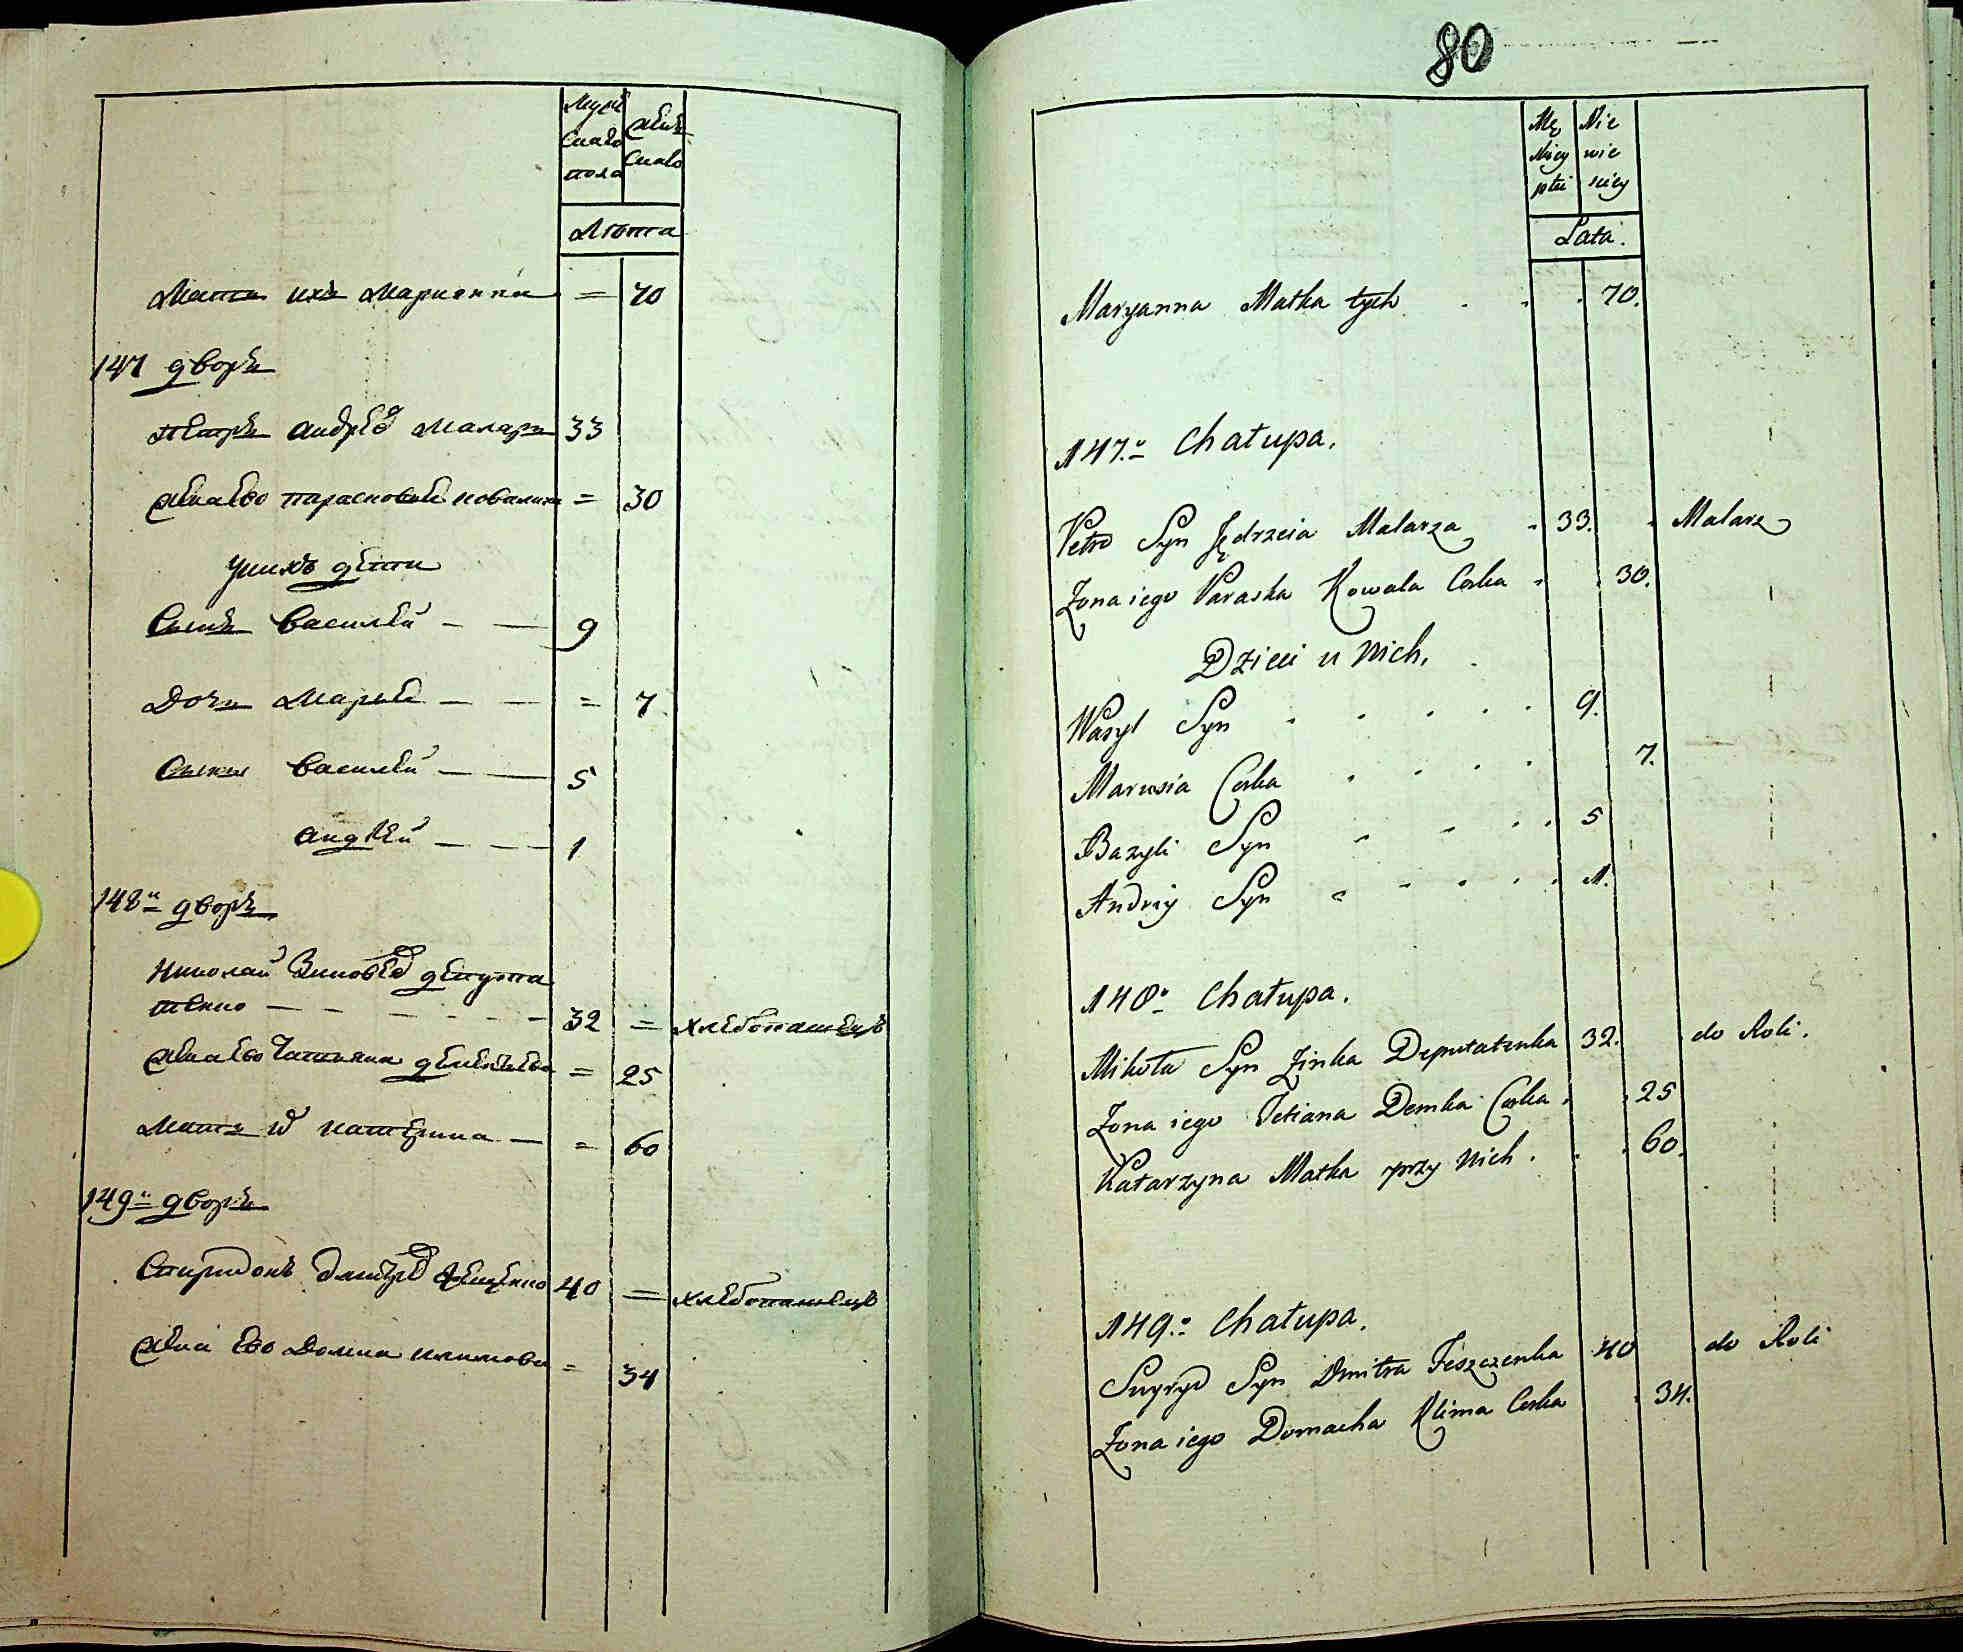 Мужеска пола
Женска
Лѣта
Мать ихъ Марианна = 70
147 дворъ
Петръ Андрѣевъ Маляръ 33
Жена ево Парасковия Ковалиха = 30
У нихъ дѣти
Сынъ Василей 9
Дочь Марья = 7
Сыны Василей 5
Андрей 1
148-й дворъ
Николай Зиновьевъ Депута
тенко 32 = хлебопашецъ
Жена ево Татьяна = 25
Мать Катерина = 60
149-й дворъ
Спиридонъ Дмитріевъ Фещенко 40 = хлебопашецъ
Жена ево Домна Климова = 34
80
Mę
skiey
płci
Nie
wie
skiey
Lata.
Maryanna Matka tych 70.
147.o Chałupa.
Petro Syn Jędrzeia Malarza 33. Malarz
Zona iego Paraska Kowala Corka 30.
Dzieci u Nich.
Wasyl Syn 9.
Marusia Corka 7.
Bazyli Syn 5
Andriy Syn 1.
148o Chałupa.
Mikoła Syn Zinka Deputatenka 32. do Roli.
Zona iego Tetiana Demka Corka 25
Katarzyna Matka przy Nich. 60.
149.o Chałupa.
Spyryd Syn Dmitra Feszczenka 40 do Roli
Zona iego Domacha Klima Corka 34.